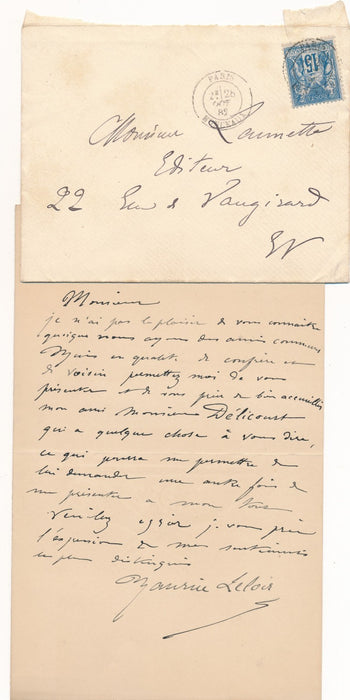 PARIS
26
OCT
82
15
Monsieur Loumette
Editeur
22 Rue de Vaugirard
EV
Monsieur
je n'ai pas le plaisir de vous connaitre
quoique nous ayons des amis communs
Mais en qualité de confrère et
de voisin permettez moi de vous
présenter et de vous prier de bien accueillir
mon ami Monsieur Délicourt
qui a quelque chose à vous dire,
ce qui pourra me permettre de
lui demander une autre fois de
me présenter a mon tour
Veuillez agréer je vous prie
l'expression de mes sentiments
les plus distingués
Maurice Leloir